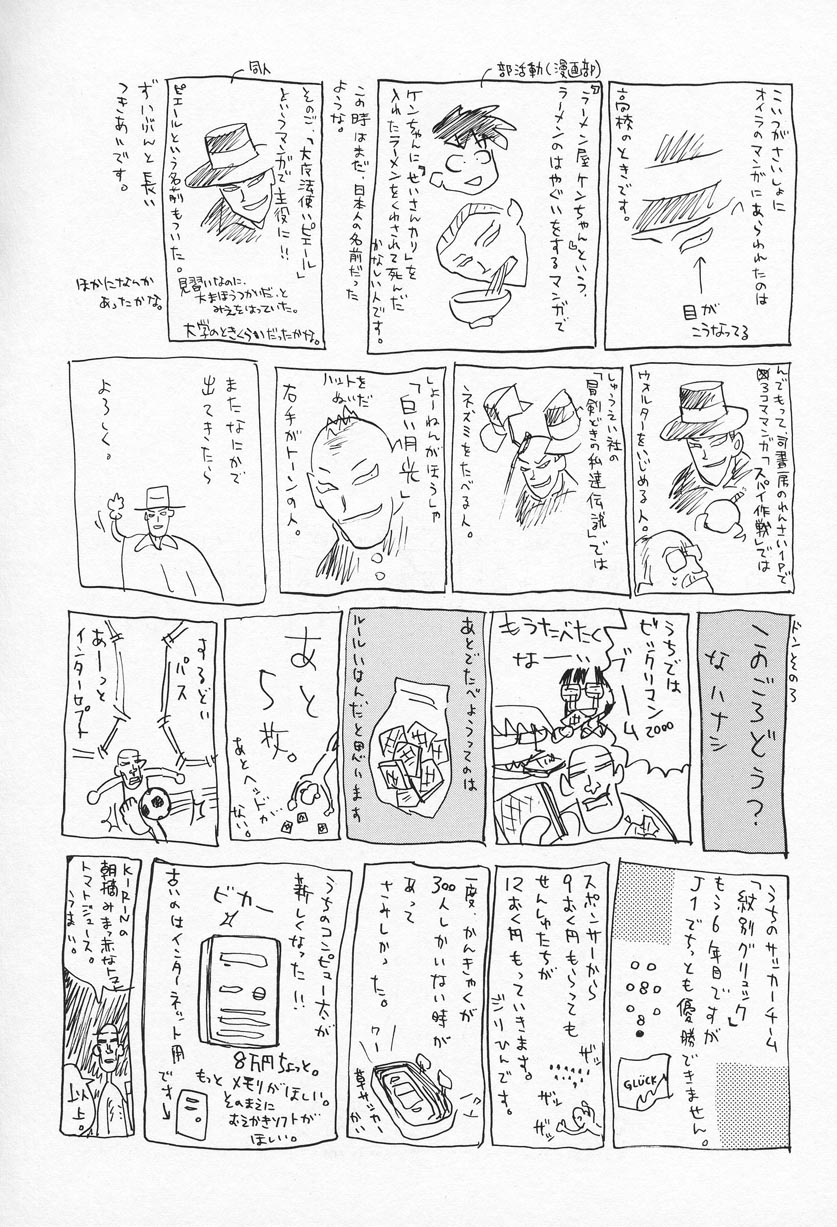 こいつがさいしょに
オイラのマンガにあらわれたのは
高校のときです。
目が
こうなってる
部活動(漫画部)
「ラーメン屋ケンちゃん」という、
ラーメンのはやぐいをするマンガで
ケンちゃんに「せいさんカリ」を
入れたラーメンをくわされて死んだ
かなしい人です。
この時はまだ、日本人の名前だった
ような。
同人
そのご、「大魔法使いピエール」
というマンガで主役に!!
ピエールという名前もついた。
見習いなのに、
大まほうつかいだ、と
みえをはっていた。
大学のときくらいだったかな。
ずいぶんと長い
つきあいです。
ほかになんか
あったかな。
んでもって、司書房のれんさい1Pで
3コママンガ「スパイ作戦」では
ウォルターをいじめる人。
しゅうえい社の
「冒剣どきの私達伝説」では
ネズミをたべる人。
しょーねんがほうしゃ
「白い月光」
ハットを
ぬいだ
右手がトーンの人。
またなにかで
出てきたら
よろしく。
ドンその3
このごろどう?
なハナシ
うちでは
ビックリマン
2000
ブーム
もうたべたく
なーい
あとでたべようってのは
ルールいはんだと思います
あと
5枚。
あとヘッドが
ない。
するどい
パス
あーっと
インターセプト
うちのサッカーチーム
「紋別グリュック」
もう6年目ですが
J1でちっとも優勝できません。
GLÜCK
スポンサーから
9おく円もらっても
せんしゅたちが
12おく円もっていきます。
ジリひんです。
ザッ
ザッ
ザッ
一度、かんきゃくが
300人しかいない時が
あって
さみしかった。
ワー
草サッカー
かい
うちのコンピュー太が
新しくなった!!
ピカー
8万円ちょっと。
もっとメモリがほしい。
そのまえに
おえかきソフトが
ほしい。
古いのはインターネット用
です→
KIRINの
朝摘みまっ赤なトマト
トマトジュース。
うまい。
以上。